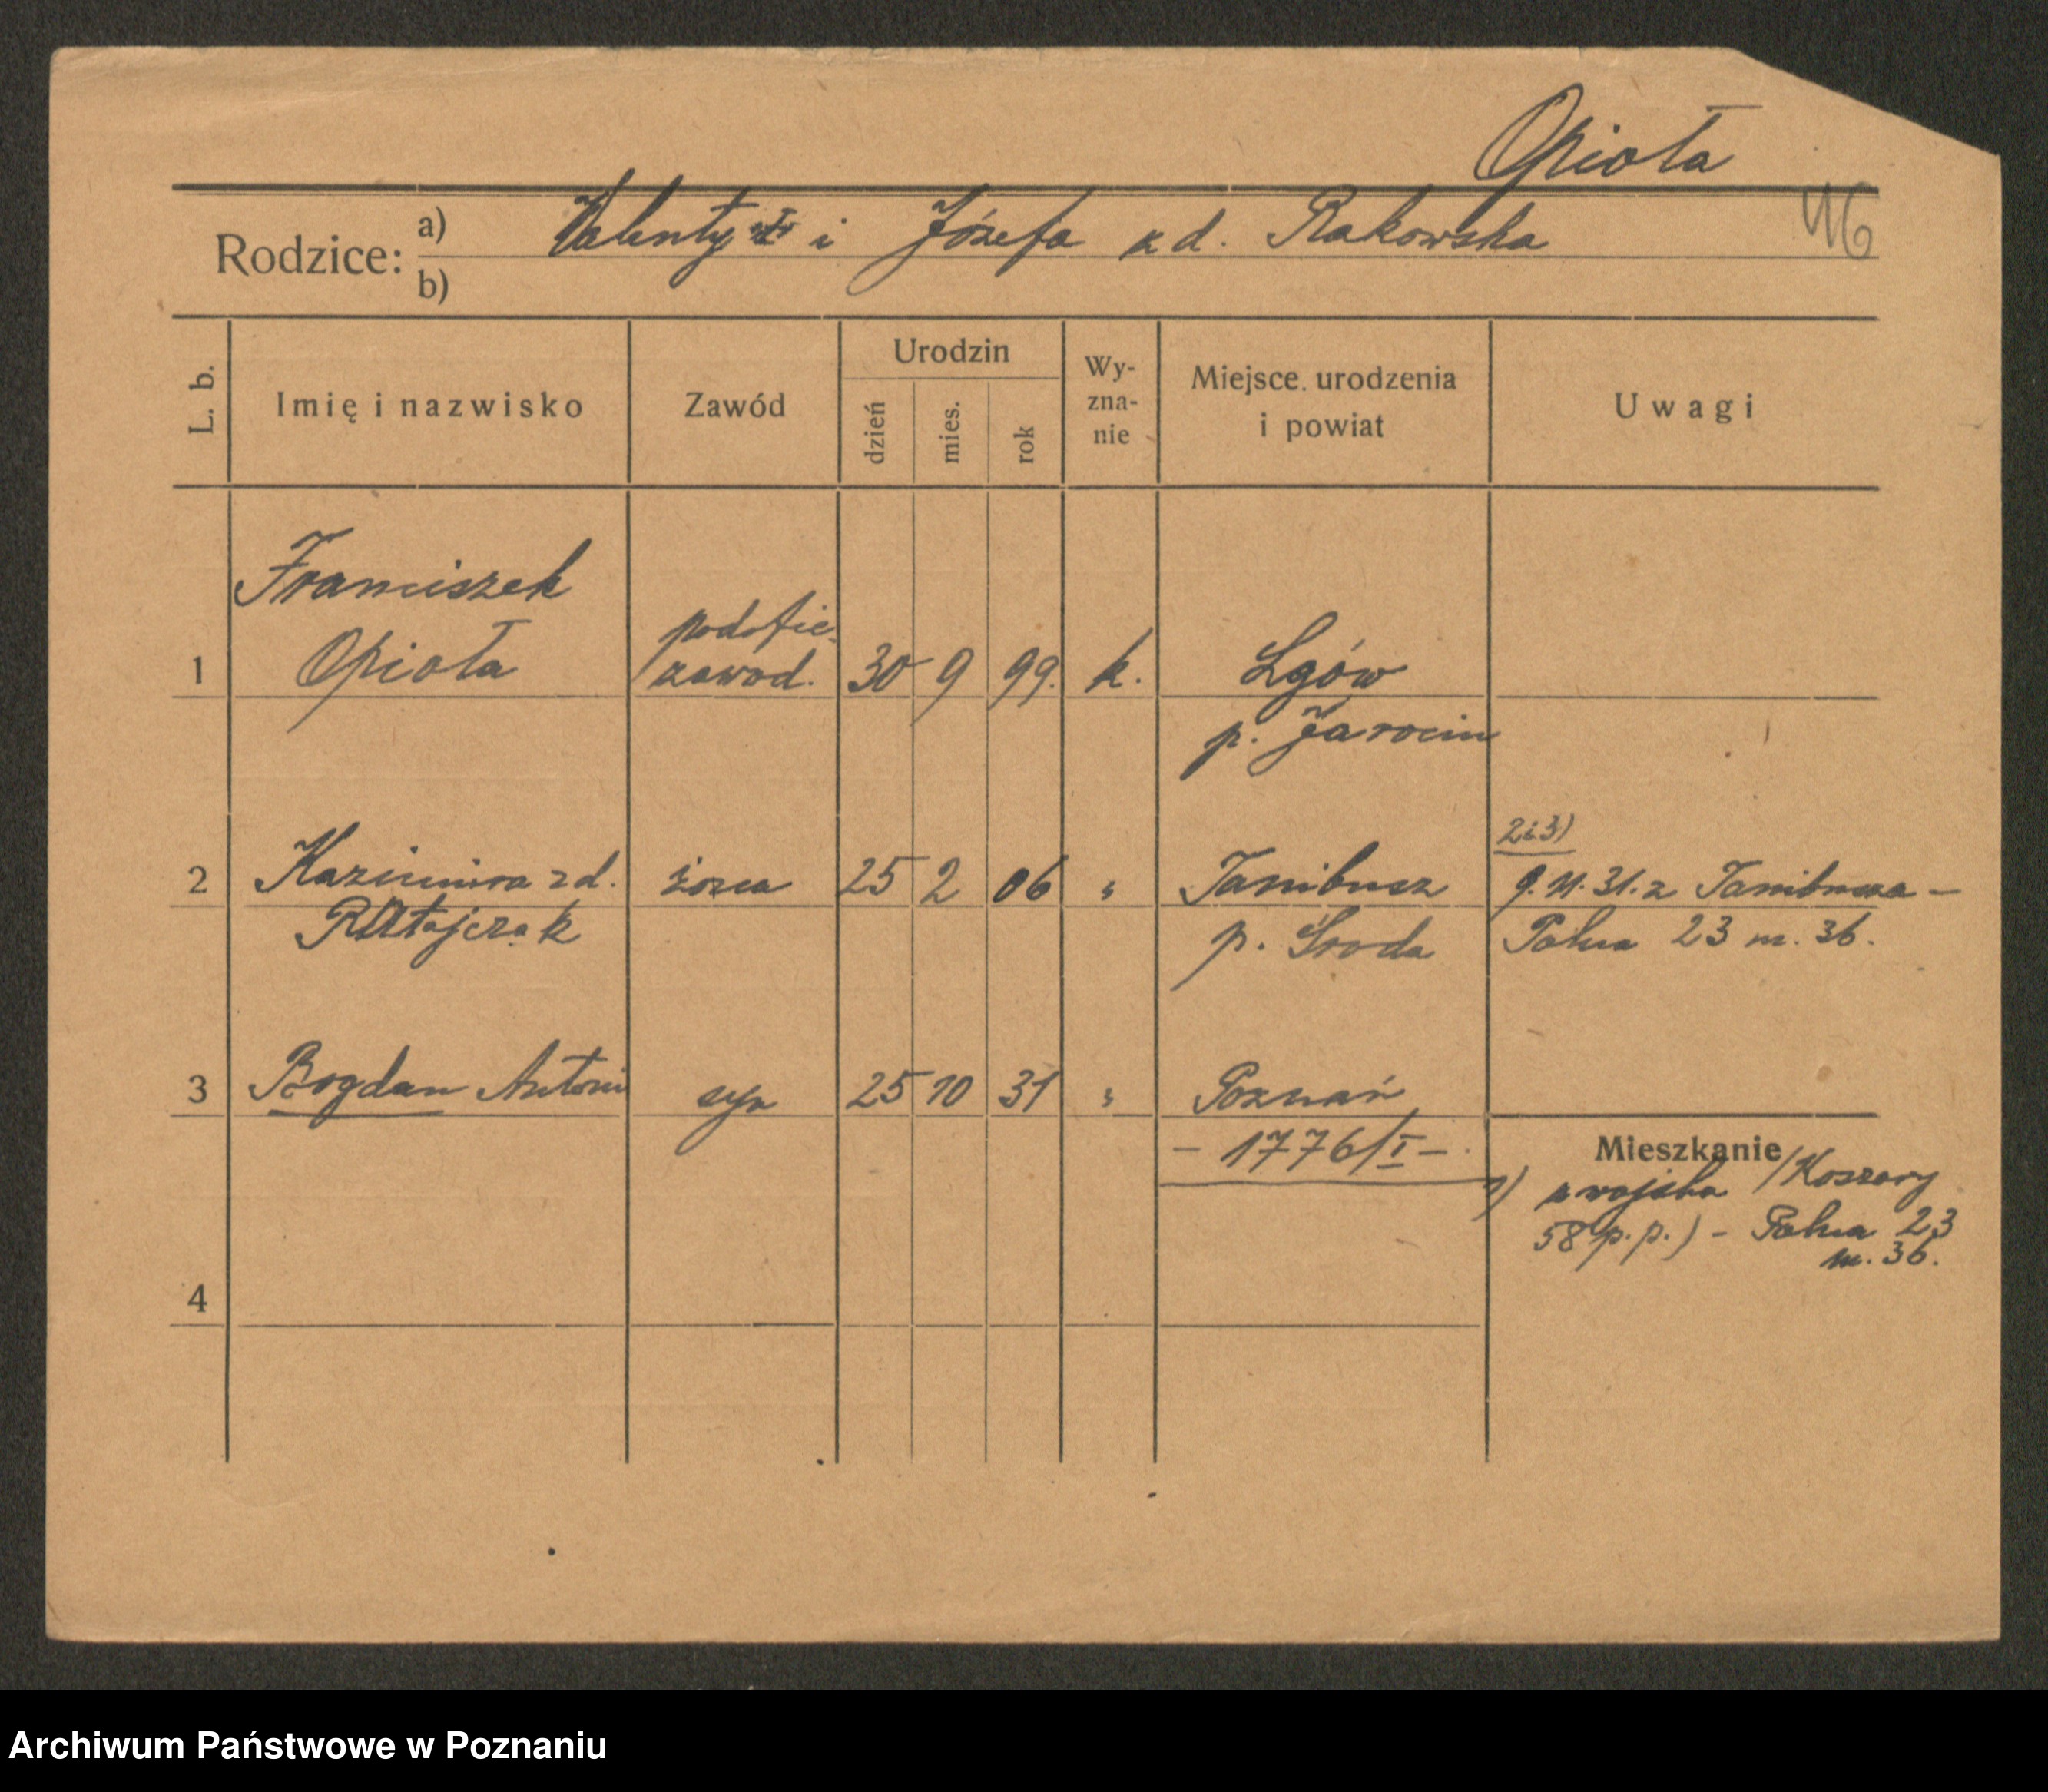 Opioła
Rodzice: a) Walenty i Józefa z d. Rakowska
46
b)
L. b. Imię i nazwisko Zawód Urodzin dzień mies. rok Wy-zna-nie Miejsce urodzenia i powiat Uwagi
Franciszek
podofic.
1 Opioła zawod. 30 9 99. k. Lgów
p. Jarocin
2 i 3)
2 Kazimiera z d. żona 25 2 06 " Tanibusz 9.11.31. z Tanibusza –
Ratajczak p. Środa Polna 23 m. 36.
3 Bogdan Antoni syn 25 10 31 " Poznań
– 1776/I – Mieszkanie
1) z wojska /Koszary
58 p. p.) – Polna 23
m. 36.
4
Archiwum Państwowe w Poznaniu